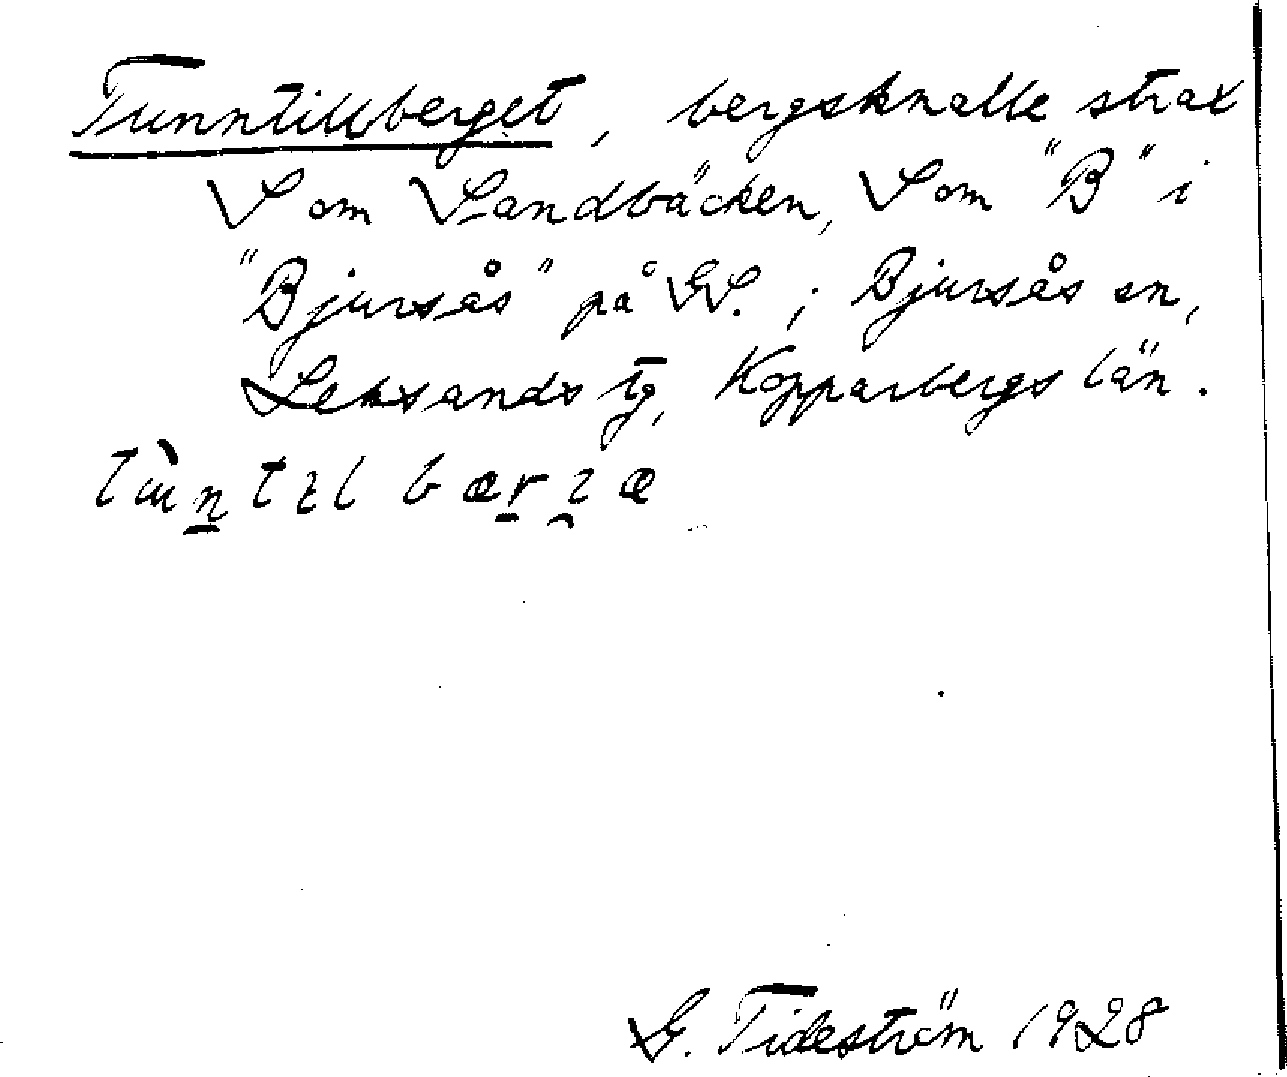 Tunntillberget, bergsknalle strax
S om Sandbäcken, S om "B" i
"Bjursås" på GS.; Bjursås sn,
Leksands tg, Kopparbergs län.
G. Tideström 1928